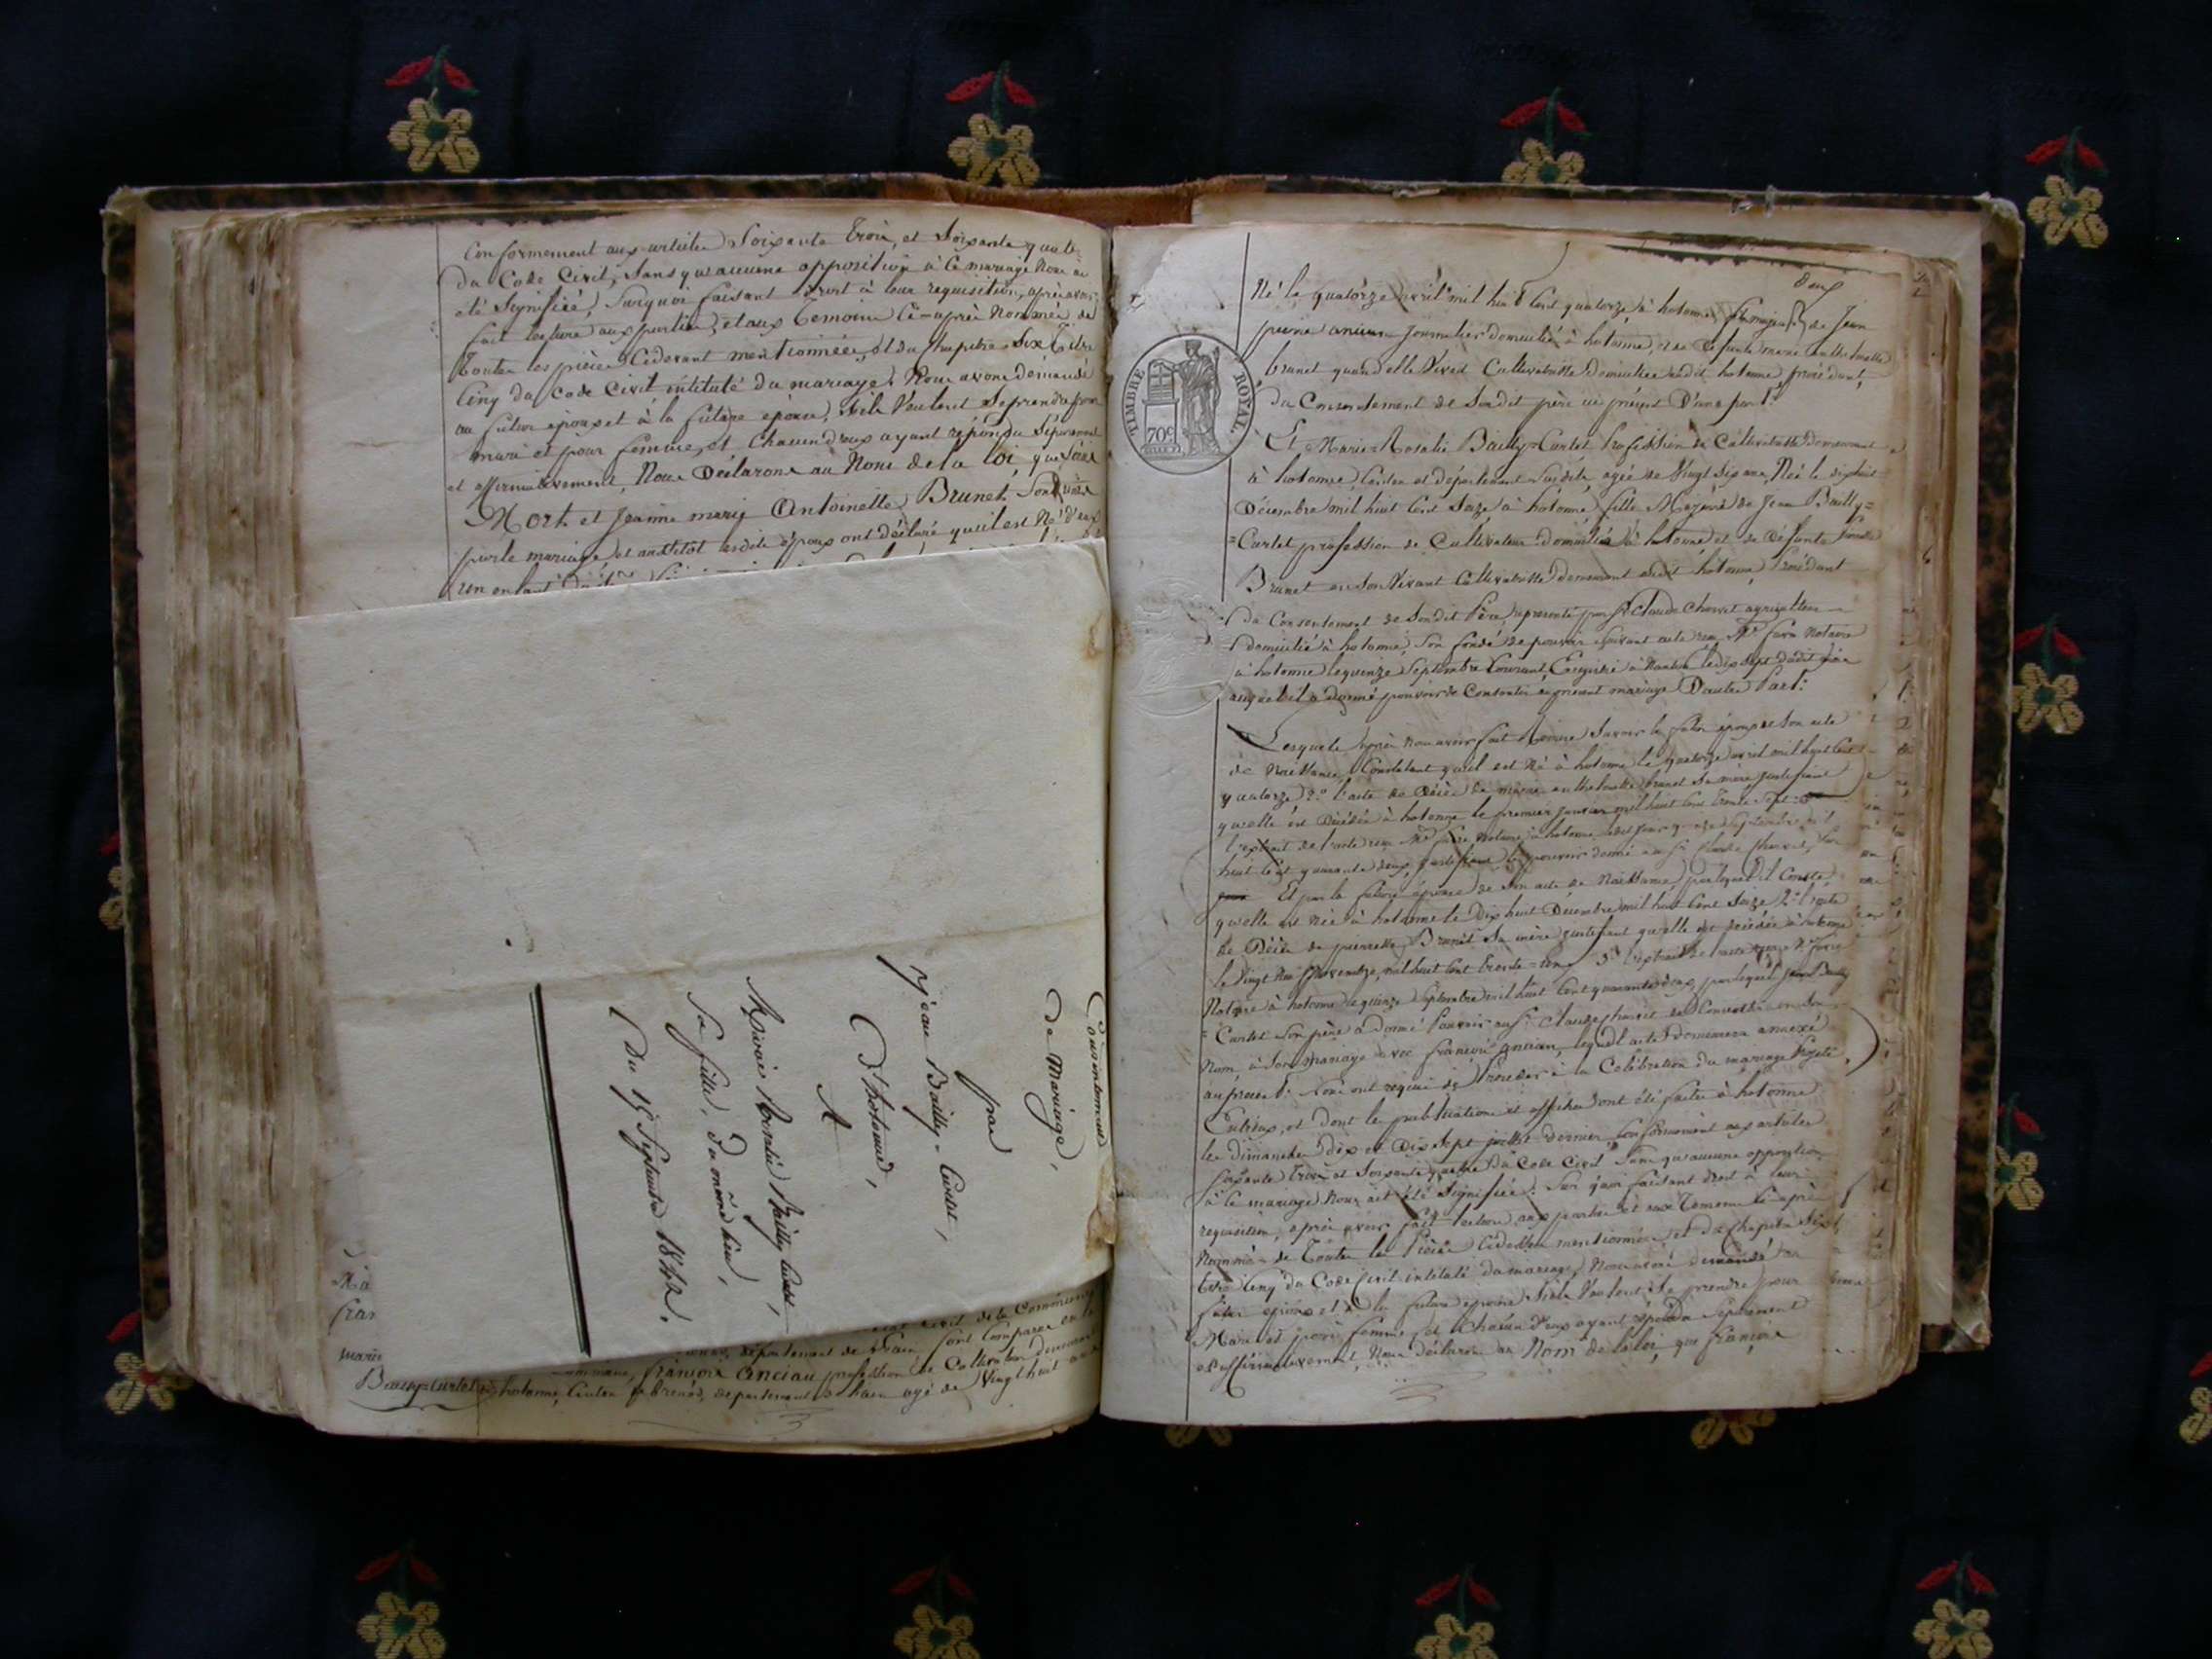 Conformement aux articles Soixante Trois, et Soixante quatre
du Code Civil, Sans qu'aucune opposition à ce mariage Nous ai
été Signifiée, Surquoi faisant droit à leur requisition, après avoir
fait lecture aux parties, et aux temoins Ci-après Nommés de
Toutes les pièces Cidevant mentionnées, et du Chapitre Six Titre
Cinq du Code Civil intitulé du mariage. Nous avons demandé
au futur époux et à la future épouse, s'ils Veulent se prendre pour
mari et pour femme, et Chacun d'eux ayant répondu Séparement
et affirmativement, Nous Déclarons au Nom de la loi, que
Mort et Jeanne mary Antoinette Brunet Sont unis
par le mariage et aussitôt lesdits époux ont déclaré qu'il est Né d'eux
un enfant
Consentement
de Mariage,
par
Jean Bailly-Curtet,
D'hotonne,
A
Marie Rosalie Bailly Curtet,
Sa fille, Du même lieu,
Du 15 Septembre 1842.
Civil de la Commune
département de l'ain Sont Comparus
François Ancian profession de Cultivateur demeurant
marie
Bailly-Curtet à hotonne, Canton de Brenod, departement de l'ain agé de Vingt huit ans
Né le quatorze avril mil huit Cent quatorze, à hotonne, fils majeur de Jean
pierre ancian Journalier domicilié à hotonne, et de défunte marie
brunet quand elle Vivait Cultivatrice domiciliée audit hotonne procédant,
du Consentement de Sondit père ici présent D'une part.
TIMBRE ROYAL
70c
Et Marie Rosalie Bailly-Curtet Profession de Cultivatrice Demeurant
à hotonne, Canton et département Susdits, agée de Vingt Six ans, Née le dix huit
Décembre mil huit Cent Seize à hotonne, fille Majeure de Jean Bailly=
=Curtet profession de Cultivateur domicilié à hotonne et de défunte Pierrette
Brunet en Son Vivant Cultivatrice Demeurant audit hotonne, Procédant
du Consentement de Sondit Père, représenté par Sr Claude Charvet agriculteur
domicilié à hotonne, Son fondé de pouvoir Suivant acte reçu Me Notaire
à hotonne le quinze Septembre Courant, Enregistré à Nantua le dix sept dudit
auquel il a donné pouvoir de Consentir au présent mariage D'autre Part.
Lesquels après nous avoir fait Savoir le futur époux Son acte
de Naissance, Constatant qu'il est Né à hotonne le quatorze avril mil huit Cent
quatorze, 2o l'acte de Décès de marie brunet Sa mère justifiant
qu'elle est Décédée à hotonne le premier janvier mil huit Cent Trente Sept
l'extrait de l'acte reçu Me Notaire à hotonne Septembre mil
huit Cent quarante deux, justifiant le pouvoir donné au Sr Claude Charvet,
Et par la future épouse de Son acte de Naissance, par lequel il Conste
qu'elle est Née à hotonne le Dix huit Décembre mil huit Cent Seize 2o l'acte
de Décès de pierrette Brunet Sa mère justifiant qu'elle est décédée à hotonne
le Vingt Novembre, mil huit Cent Trente 3o l'extrait de l'acte reçu Me
Notaire à hotonne le quinze Septembre mil huit Cent quarante deux, par lequel Jean Bailly
= Curtet Son père a donné Pouvoir au Sr Claude Charvet de Consentir en Son
Nom, à Son Mariage avec françois Ancian, lequel acte demeurera annexé
au présent. Nous ont requis de Procéder à la Celébration du mariage Projeté
Entr'eux, et dont les publications et affiches ont été faites à hotonne
les dimanches dix et Dix Sept juillet dernier Conformément aux articles
Soixante Trois et Soixante quatre du Code Civil Sans qu'aucune opposition
à ce mariage Nous ait été Signifiée: Sur quoi faisant droit à leur
requisition, après avoir fait lecture aux parties et aux Temoins ci-après
Nommés de Toutes les Pièces Cidessus mentionnées et du Chapitre Six,
titre Cinq du Code Civil intitulé du mariage, Nous avons demandé au
futur époux et à la future épouse S'ils Veulent Se prendre pour
Mari et pour femme, et Chacun d'eux ayant répondu Séparement
et affirmativement, Nous déclarons au Nom de la loi, que françois